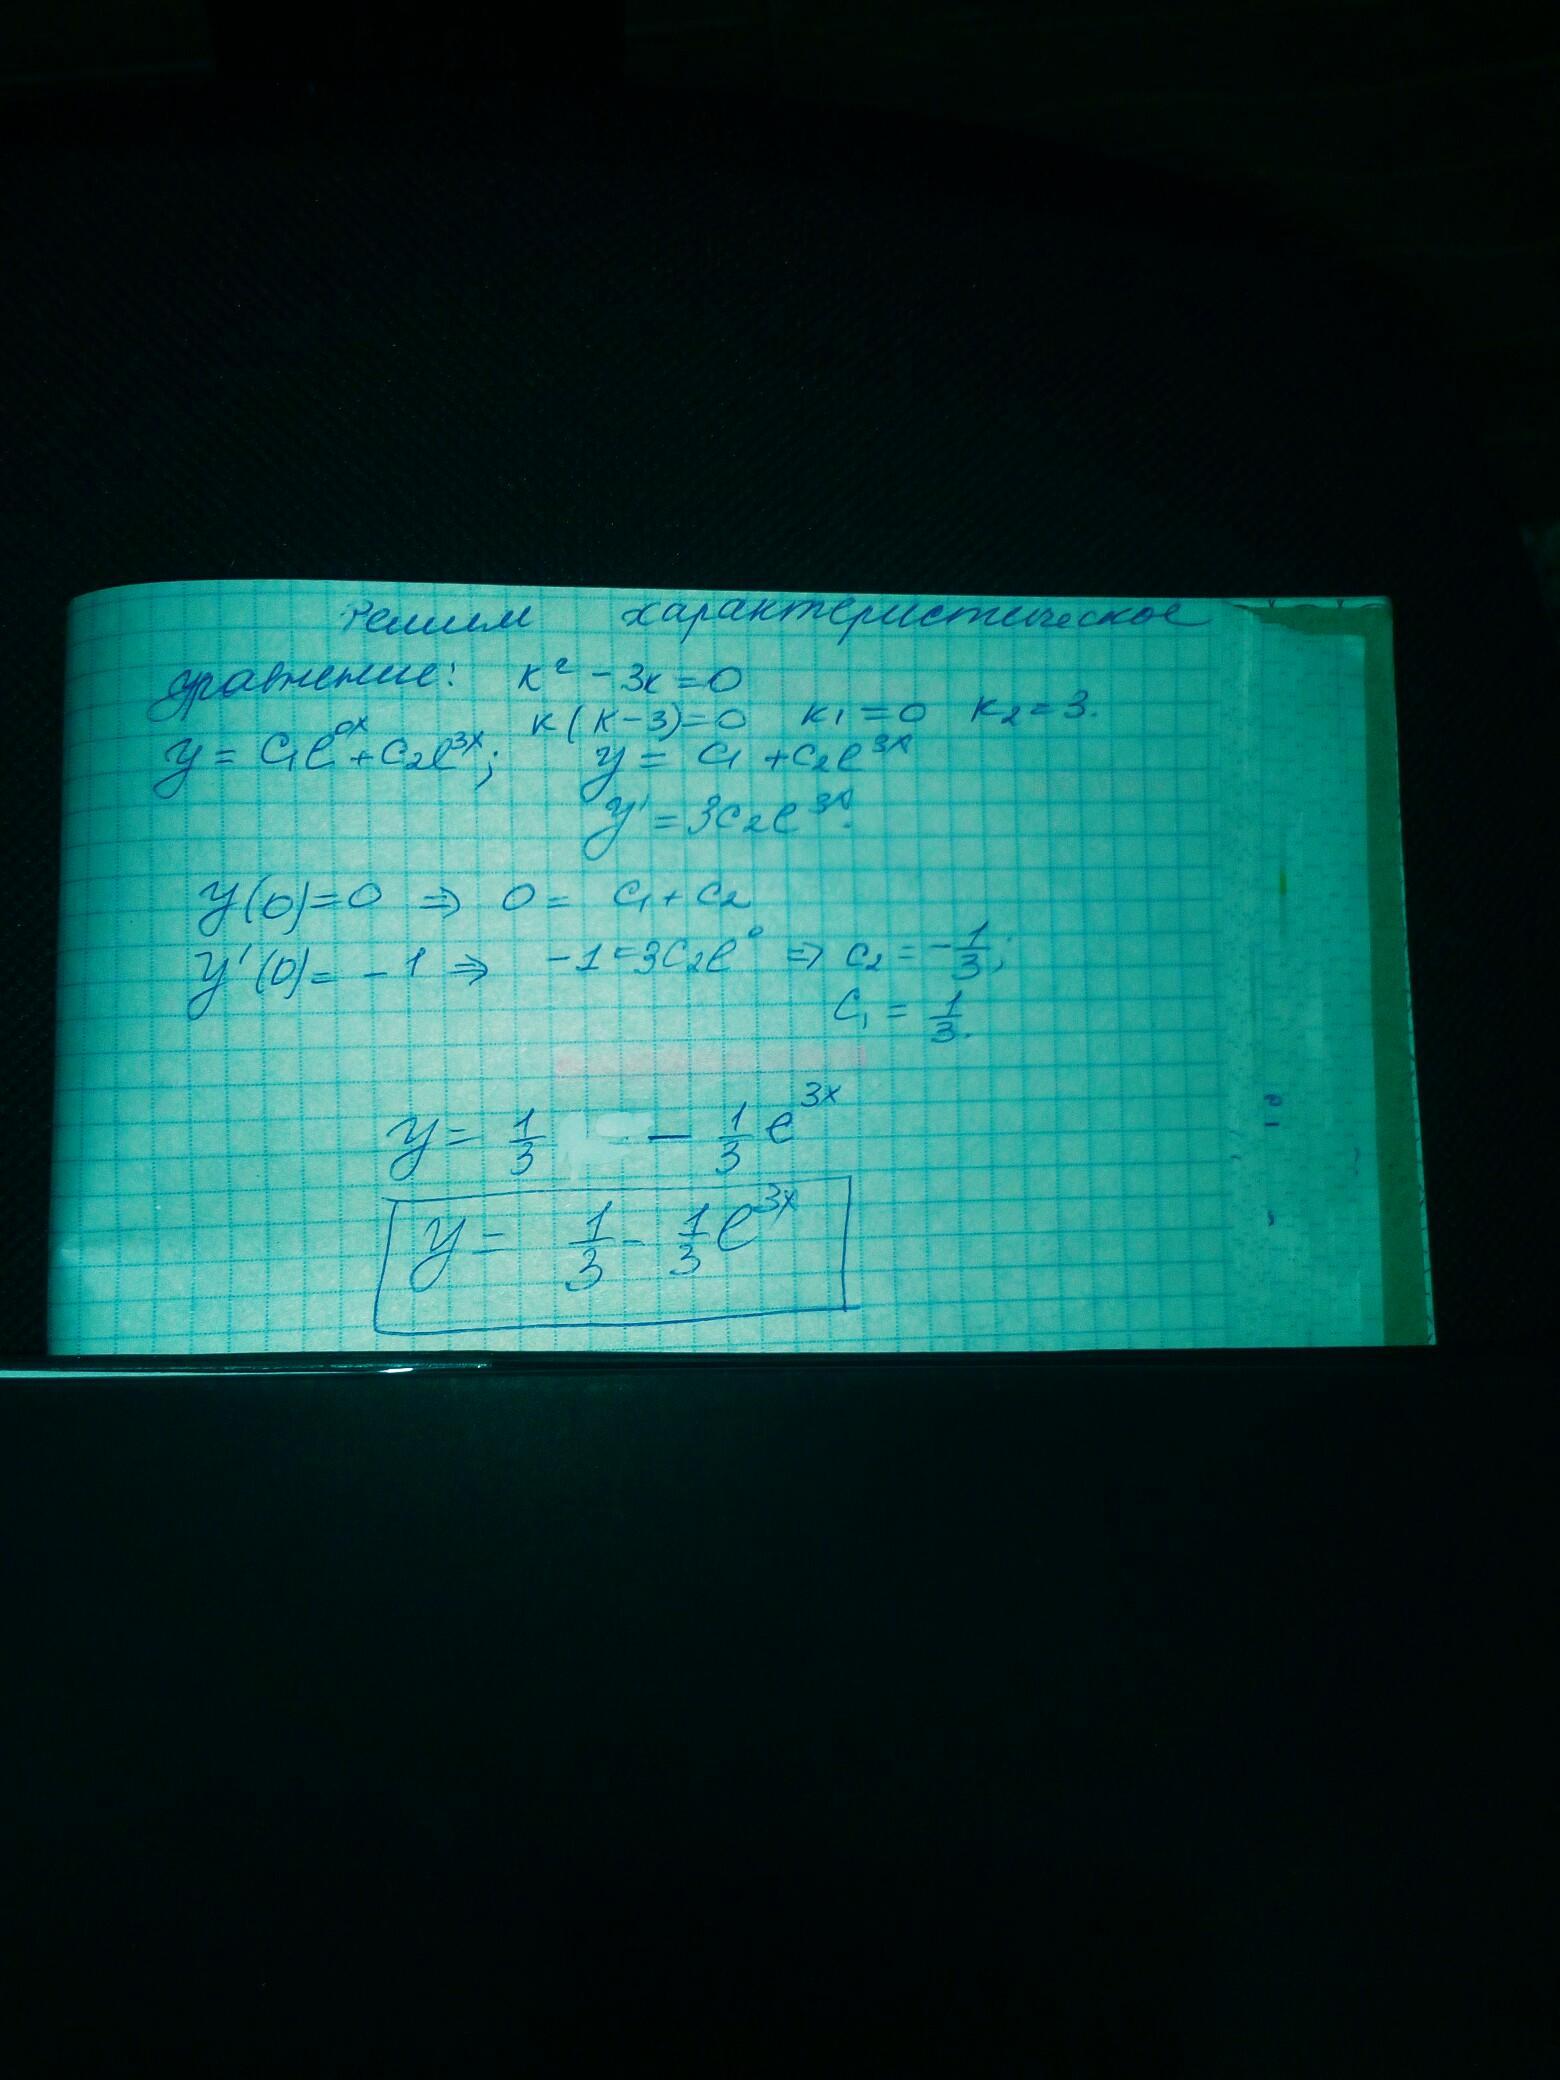 Решим характеристическое
уравнение: к² - 3к = 0
к(к-3)=0 к₁=0 к₂=3.
y = C₁e^{0x} + C₂e^{3x}; y = C₁ + C₂e^{3x}
y' = 3C₂e^{3x}.
y(0)=0 ⇒ 0 = C₁ + C₂
y'(0) = -1 ⇒ -1 = 3C₂e⁰ ⇒ C₂ = -1/3;
C₁ = 1/3.
y = 1/3 - 1/3 e^{3x}
y = 1/3 - 1/3 e^{3x}